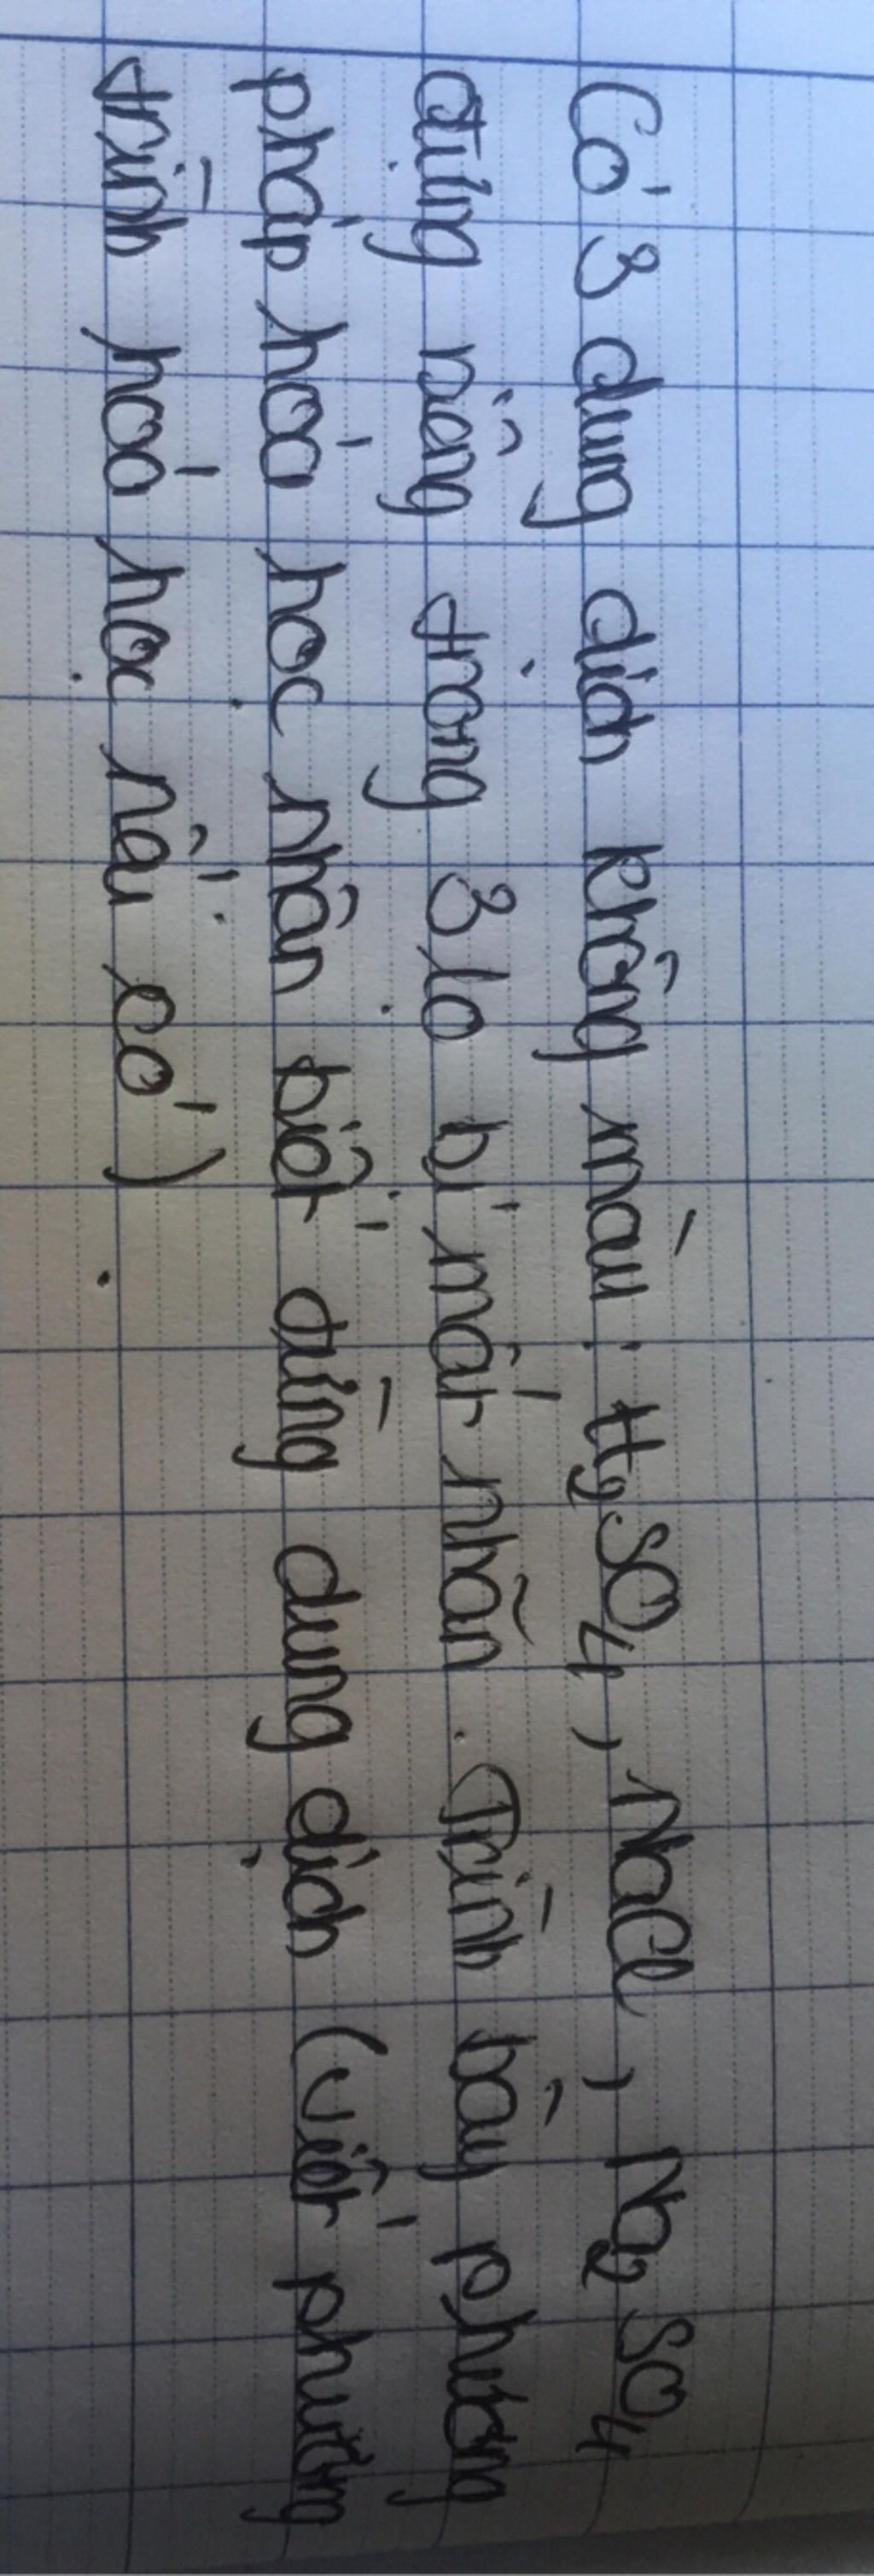 Có 3 dung dịch không màu: H2SO4, NaCl, Na2SO4
đựng riêng trong 3 lọ bị mất nhãn. Trình bày phương
pháp hóa học nhận biết từng dung dịch (viết phương
trình hoá học nếu có).